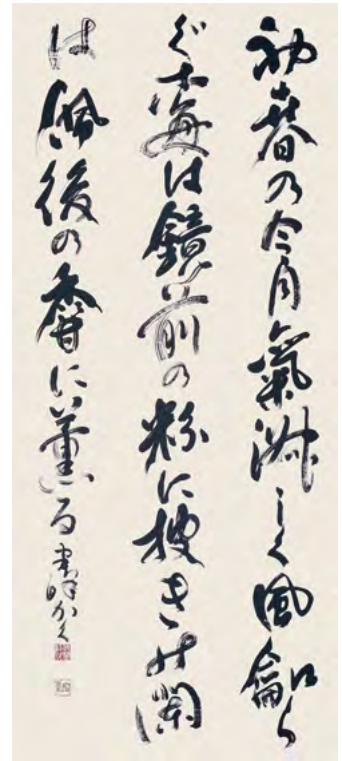 初春の令月氣淑しく風龢ら
ぐ梅は鏡前の粉に披き蘭
は佩後の香に薫る